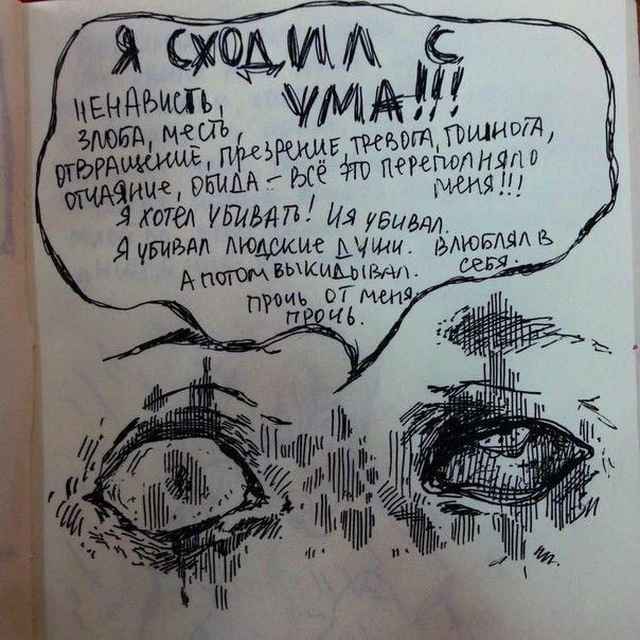 Я СХОДИЛ С
УМА!!!
НЕНАВИСТЬ,
ЗЛОБА, МЕСТЬ,
ОТВРАЩЕНИЕ, ПРЕЗРЕНИЕ, ТРЕВОГА, ТОШНОТА,
ОТЧАЯНИЕ, ОБИДА – ВСЁ ЭТО ПЕРЕПОЛНЯЛО
МЕНЯ!!!
Я ХОТЕЛ УБИВАТЬ! И Я УБИВАЛ.
Я УБИВАЛ ЛЮДСКИЕ ДУШИ. ВЛЮБЛЯЛ В
СЕБЯ.
А ПОТОМ ВЫКИДЫВАЛ.
ПРОЧЬ ОТ МЕНЯ,
ПРОЧЬ.